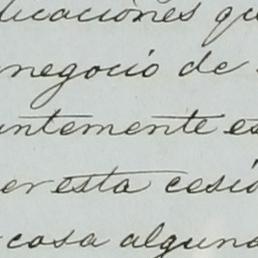 licaciones qu
negocio de
intemente es
er esta cesió
cosa alguna